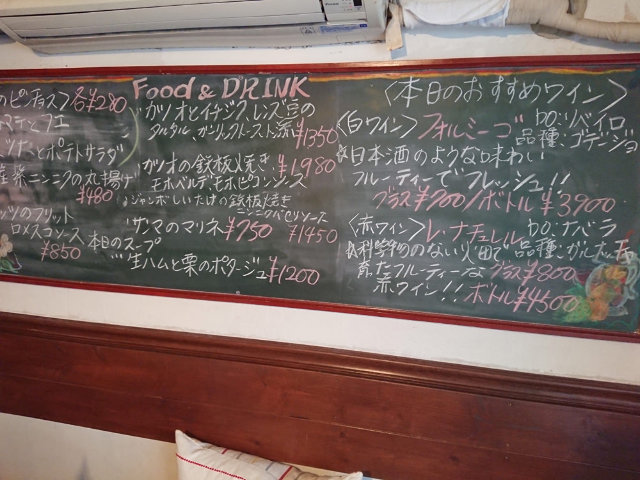 Food & DRINK
のピンチョス〉各¥280
ポテトサラダ
ニンニクの丸揚げ
¥480
のフリット
ロメスコソース
¥850
カツオとイチジク、レンズ豆の
タルタル、ガーリックトースト添え
¥1350
カツオの鉄板焼き ¥1,980
モホベルデ、モホピコンソース
ジャンボしいたけの鉄板焼き
ニンニクパセリソース
¥1450
サンマのマリネ ¥750
本日のスープ
生ハムと栗のポタージュ ¥1200
〈本日のおすすめワイン〉
〈白ワイン〉フォルミーゴ DO:リベイロ
品種:ゴデージョ
日本酒のような味わい
フルーティーでフレッシュ!!
グラス¥700/ボトル¥3900
〈赤ワイン〉レ・ナチュレル DO:ナバラ
品種:ガルナッチャ
科学物のない火田で
育ったフルーティーな グラス¥800
赤ワイン!! ボトル¥4500